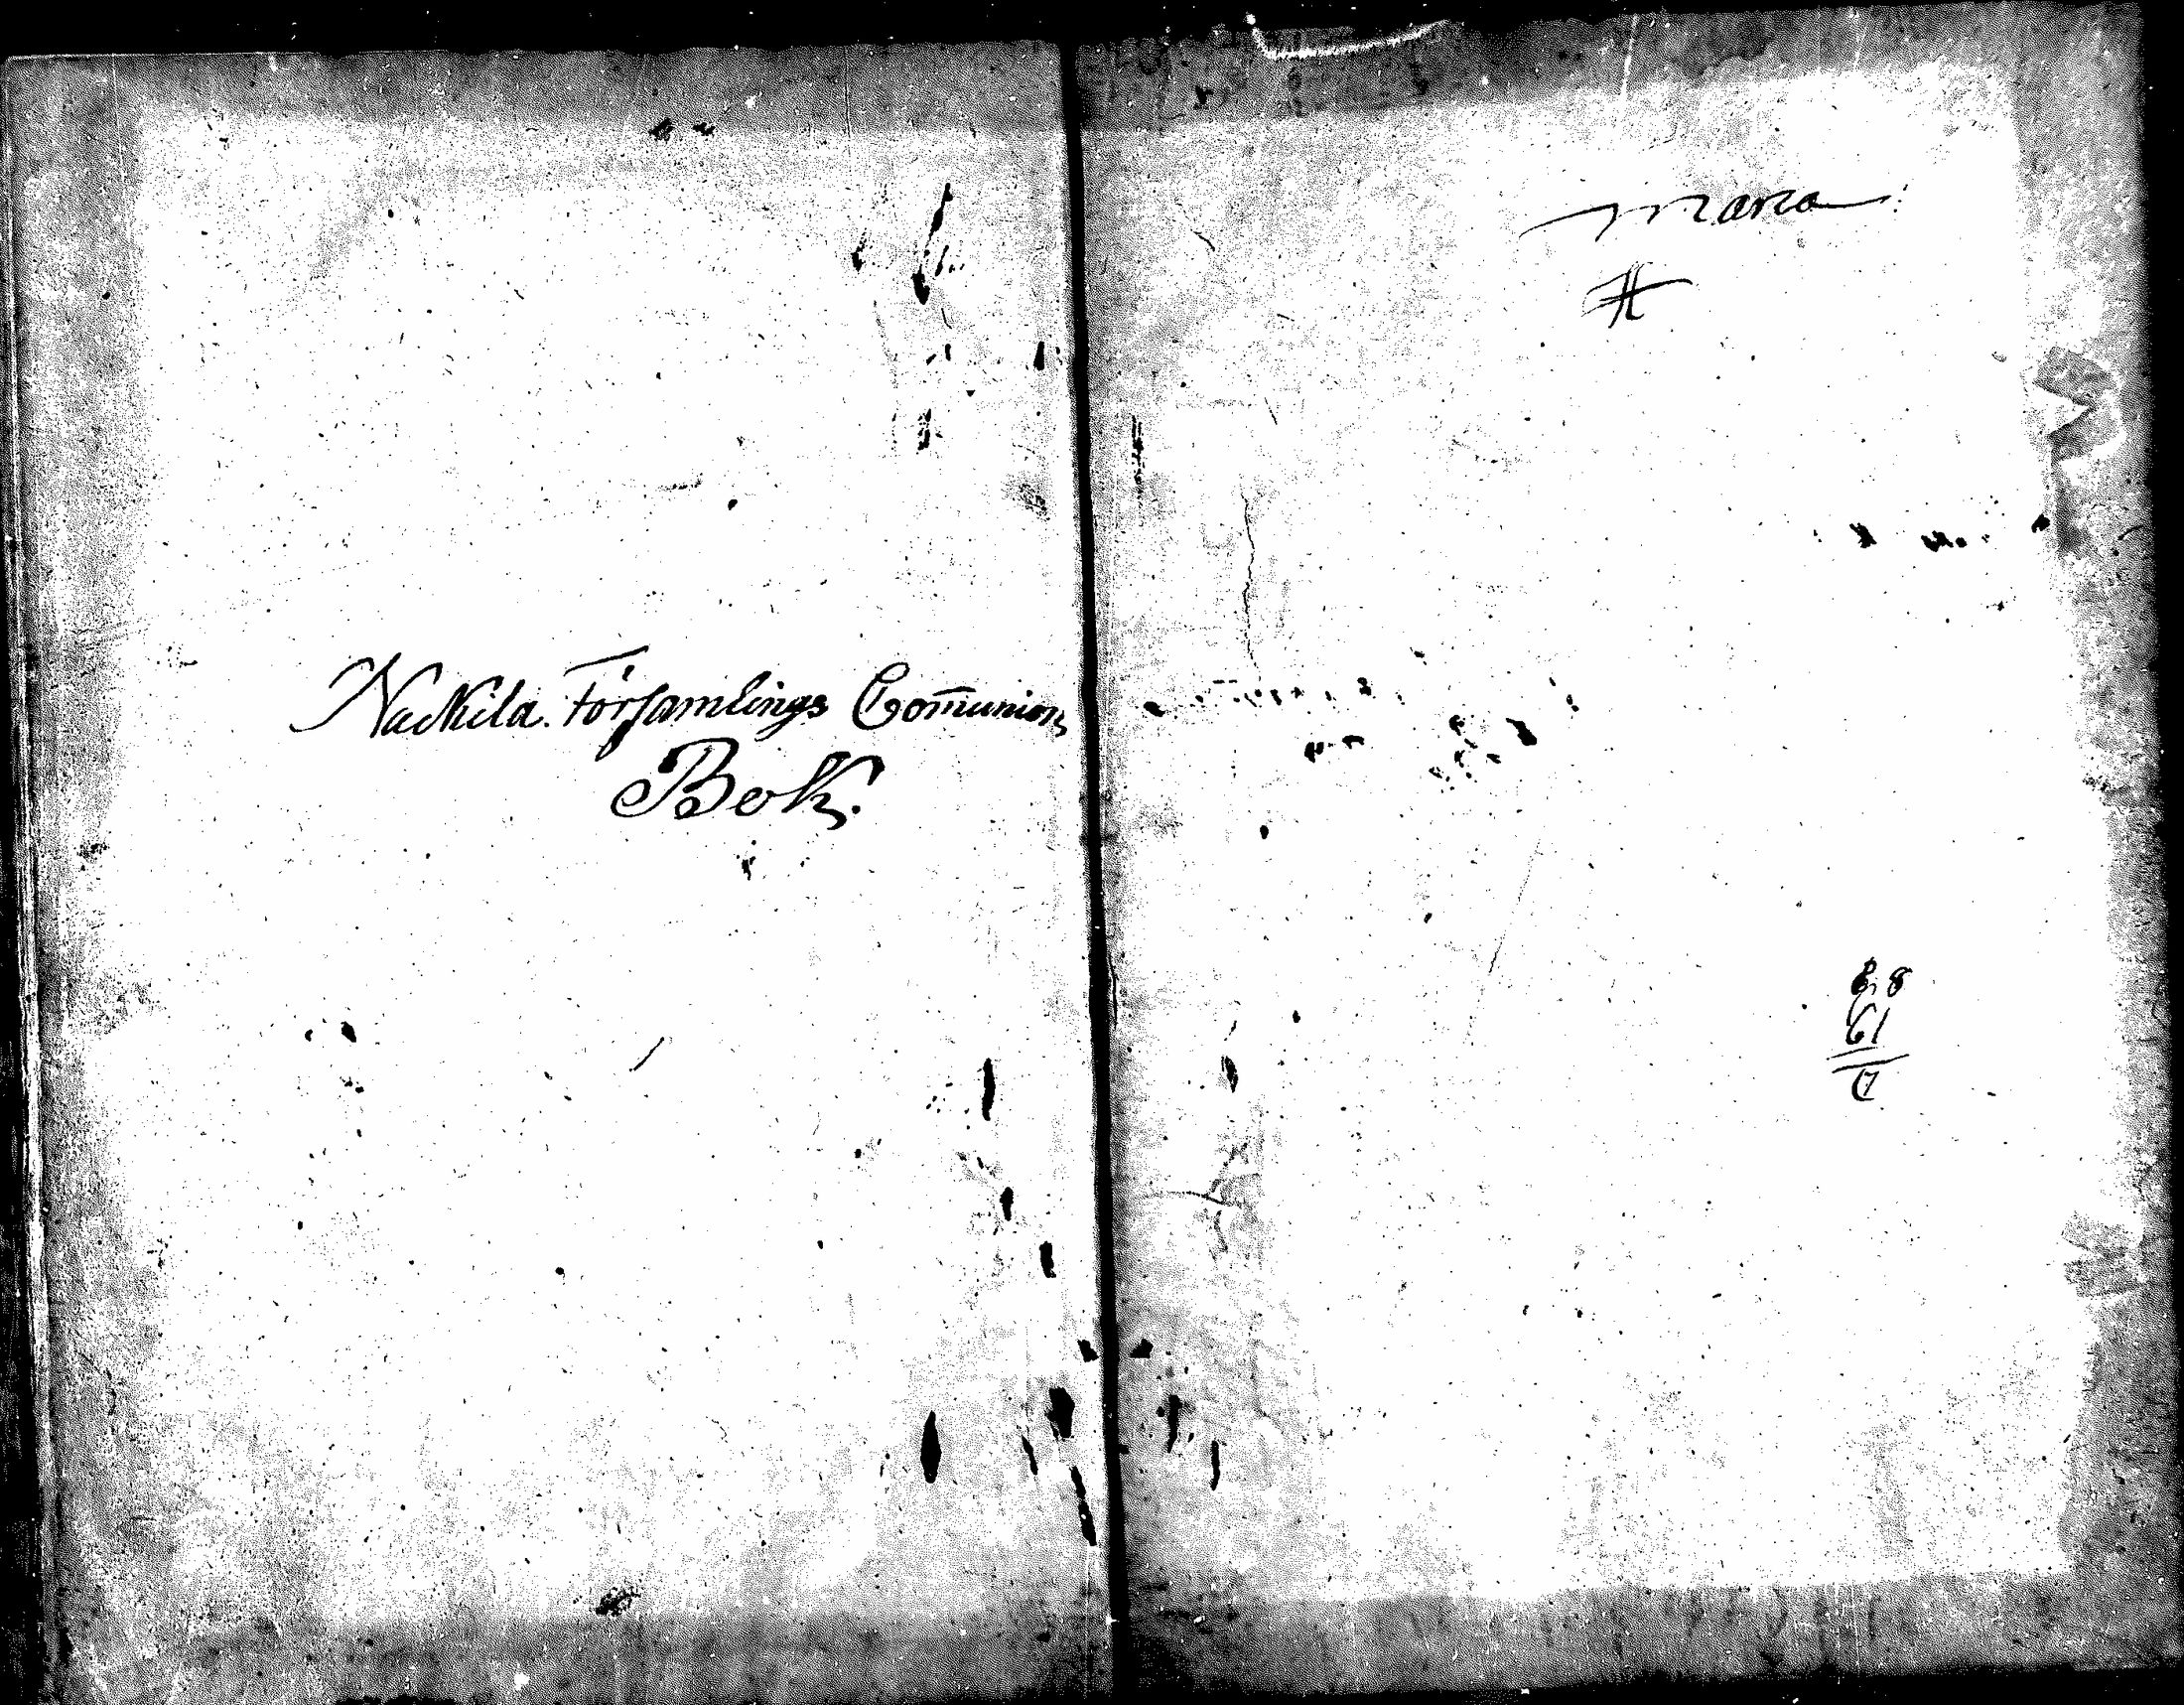 Nackila Församlings Com̄union
Bok.
Maria
H
8,8
61